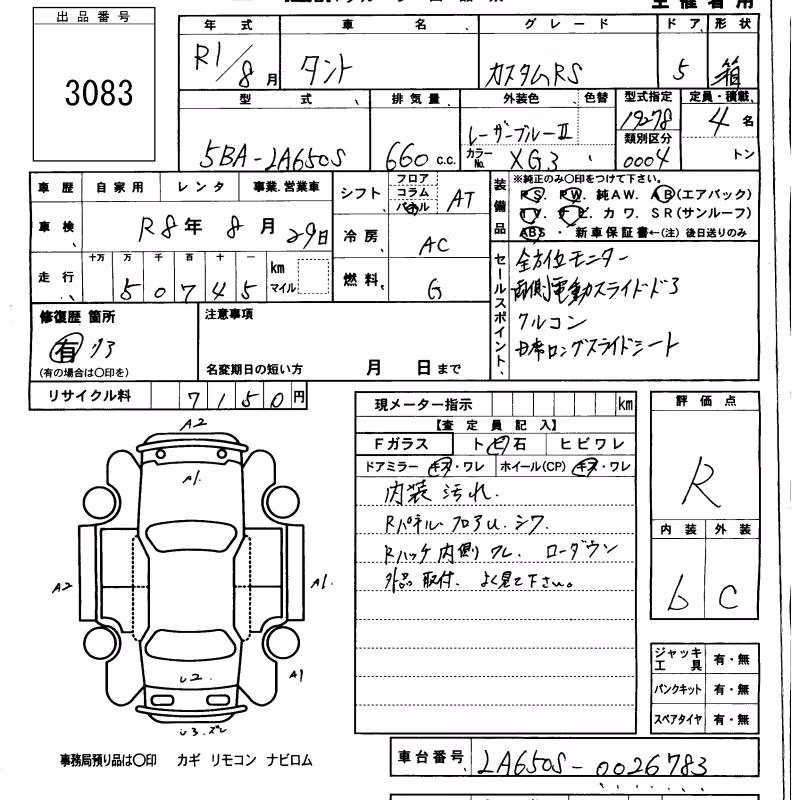 出品番号
3083
年式 車名 グレード ドア 形状
R1/8月 タント カスタムRS 5 箱
型式 排気量 外装色 色替 型式指定 定員・積載
5BA-LA650S 660 c.c. レーザーブルーII 19278 4名
カラーNo. XG3 類別区分 0004 トン
車歴 自家用 レンタ 事業.営業車
車検 R8年 8月 29日
走行 十万 万 千 百 十 一
50745 km マイル
シフト フロア コラム パネル AT
冷房 AC
燃料 G
装備品
※純正のみ○印をつけて下さい。
PS. PW. 純AW. AB(エアバック)
TV. ナビ. カワ. SR(サンルーフ)
ABS ・ 新車保証書←(注) 後日送りのみ
セールスポイント
全方位モニター
両側電動スライドドア
クルコン
助席ロングスライドシート
修復歴 箇所
有 リア
(有の場合は○印を)
注意事項
名変期日の短い方 月 日まで
リサイクル料 7150円
現メーター指示 km
【査定員記入】
Fガラス トビ石 ヒビワレ
ドアミラー キズ・ワレ ホイール(CP) キズ・ワレ
内装 汚れ.
Rパネル.フロアU.シワ.
Rハッチ内側ワレ. ローダウン
外品取付. よく見て下さい。
評価点
R
内装 外装
b C
A2
A1.
A2 A1.
U2. A1
U3.ズレ
ジャッキ工具 有・無
パンクキット 有・無
スペアタイヤ 有・無
事務局預り品は○印 カギ リモコン ナビロム
車台番号 LA650S-0026783